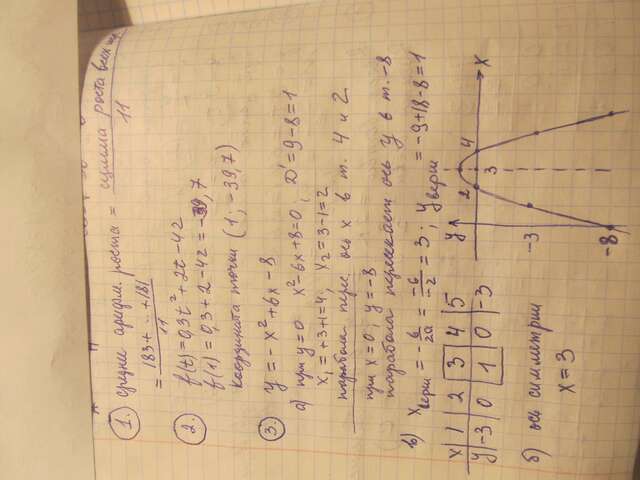 1. Средне арифм. роста = сумма роста всех
11
= 183+...+181
11
2. f(t)=0,3t²+2t-42
f(1)=0,3+2-42=-39,7
Координата точки (1; -39,7)
3. y=-x²+6x-8
а) при y=0 x²-6x+8=0, D'=9-8=1
x₁=+3+1=4; x₂=3-1=2
парабола перс. ось x в т. 4 и 2
при x=0, y=-8
парабола пересекает ось y в т. -8
в) x верш = -6/2a = -6/-2 = 3; y верш = -9+18-8=1
x 1 2 3 4 5
y -3 0 1 0 -3
б) ось симметрии
x=3
y
2
4
3
x
-3
-8